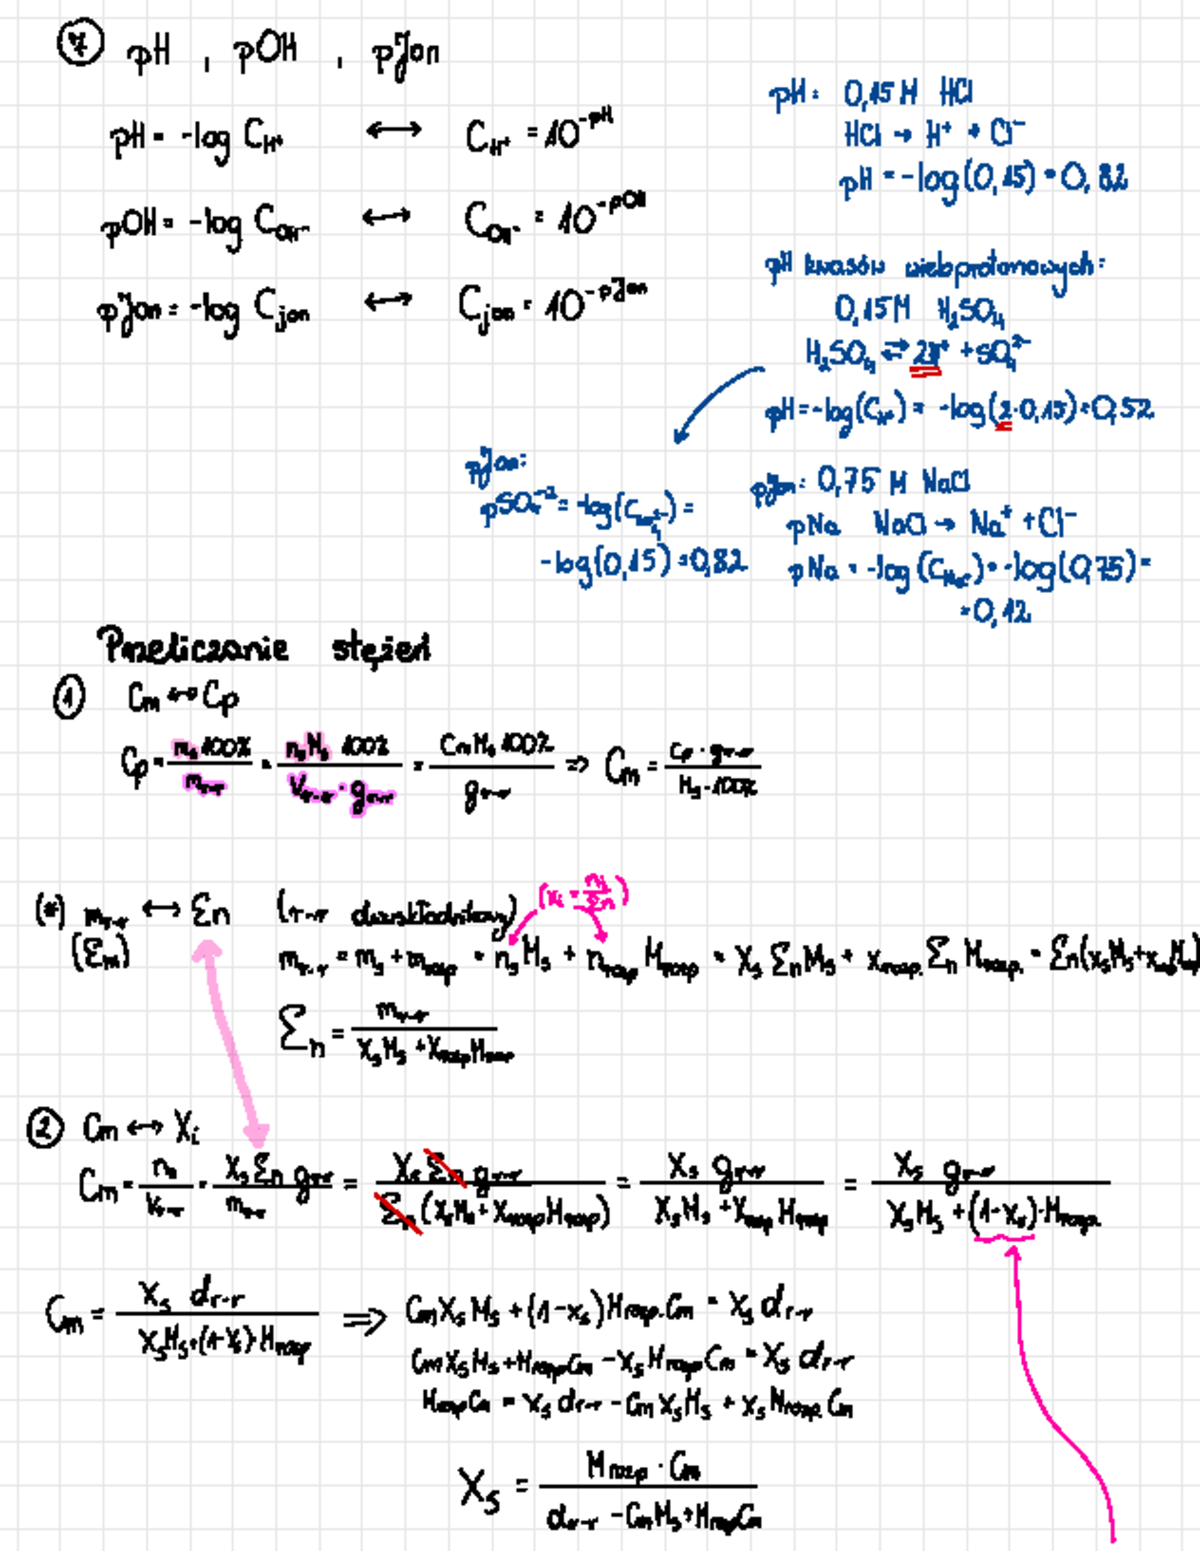 ⑦ pH , pOH , pJon
pH = -log C_H⁺ ↔ C_H⁺ = 10^-pH
pOH = -log C_OH⁻ ↔ C_OH⁻ = 10^-pOH
pJon = -log C_jon ↔ C_jon = 10^-pJon
pH: 0,15 M HCl
HCl → H⁺ + Cl⁻
pH = -log(0,15) = 0,82
pH kwasów wieloprotonowych:
0,15M H₂SO₄
H₂SO₄ ⇄ 2H⁺ + SO₄²⁻
pH = -log(C_H⁺) = -log(2·0,15) = 0,52
pJon:
pSO₄⁻² = -log(C_SO₄²⁻) =
-log(0,15) = 0,82
pJon: 0,75 M NaCl
pNa NaCl → Na⁺ + Cl⁻
pNa = -log(C_Na⁺) = -log(0,75) =
= 0,12
Przeliczanie stężeń
① Cm ↔ Cp
Cp = m_s 100% / m_r-r = n_s M_s 100% / V_r-r · g_r-r = Cm M_s 100% / g_r-r ⇒ Cm = Cp · g_r-r / M_s · 100%
(*) m_r-r ↔ Σn (r-r dwuskładnikowy) (x_i = n_i / Σn)
(Σm)
m_r-r = m_s + m_rozp = n_s M_s + n_rozp M_rozp = X_s Σn M_s + x_rozp. Σn M_rozp. = Σn(x_s M_s + x_rozp M_rozp)
Σn = m_r-r / X_s M_s + X_rozp M_rozp
② Cm ↔ X_i
Cm = n_s / V_r-r = X_s Σn g_r-r / m_r-r = X_s Σn g_r-r / Σn (X_s M_s + X_rozp M_rozp) = X_s g_r-r / X_s M_s + X_rozp M_rozp = X_s g_r-r / X_s M_s + (1-X_s)·M_rozp.
Cm = X_s d_r-r / X_s M_s + (1-X_s)·M_rozp ⇒ Cm X_s M_s + (1-x_s) M_rozp. Cm = X_s d_r-r
Cm X_s M_s + M_rozp Cm - X_s M_rozp Cm = X_s d_r-r
M_rozp Cm = X_s d_r-r - Cm X_s M_s + X_s M_rozp. Cm
X_s = M_rozp · Cm / d_r-r - Cm M_s + M_rozp Cm